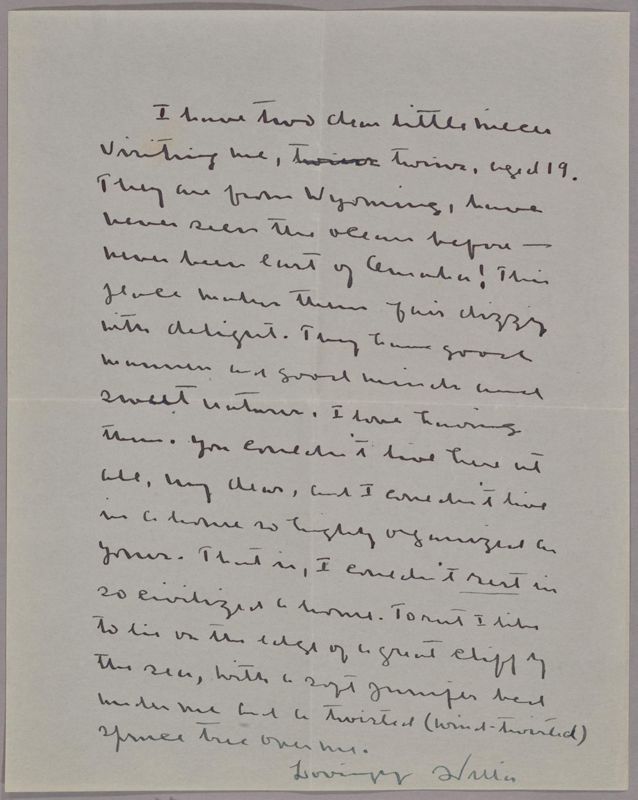 I have two dear little nieces
visiting me, twins twins, aged 19.
They are from Wyoming, have
never seen the ocean before —
never been East of Omaha! This
place makes them fair dizzy
with delight. They have good
manners and good minds and
sweet natures. I love having
them. You couldn't live here at
all, my dear, and I couldn't live
in a home so highly organized as
yours. That is, I couldn't rest in
so civilized a home. To rest I like
to lie on the edge of a great cliff by
the sea, with a soft juniper bed
under me and a twisted (wind-twisted)
spruce tree over me.
Lovingly Willa